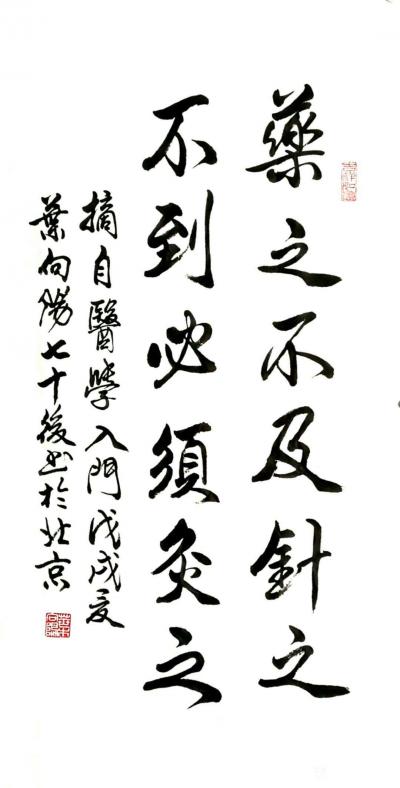 藥之不及針之
不到必須灸之
摘自醫學入門戊戌夏
葉向陽七十後書於北京